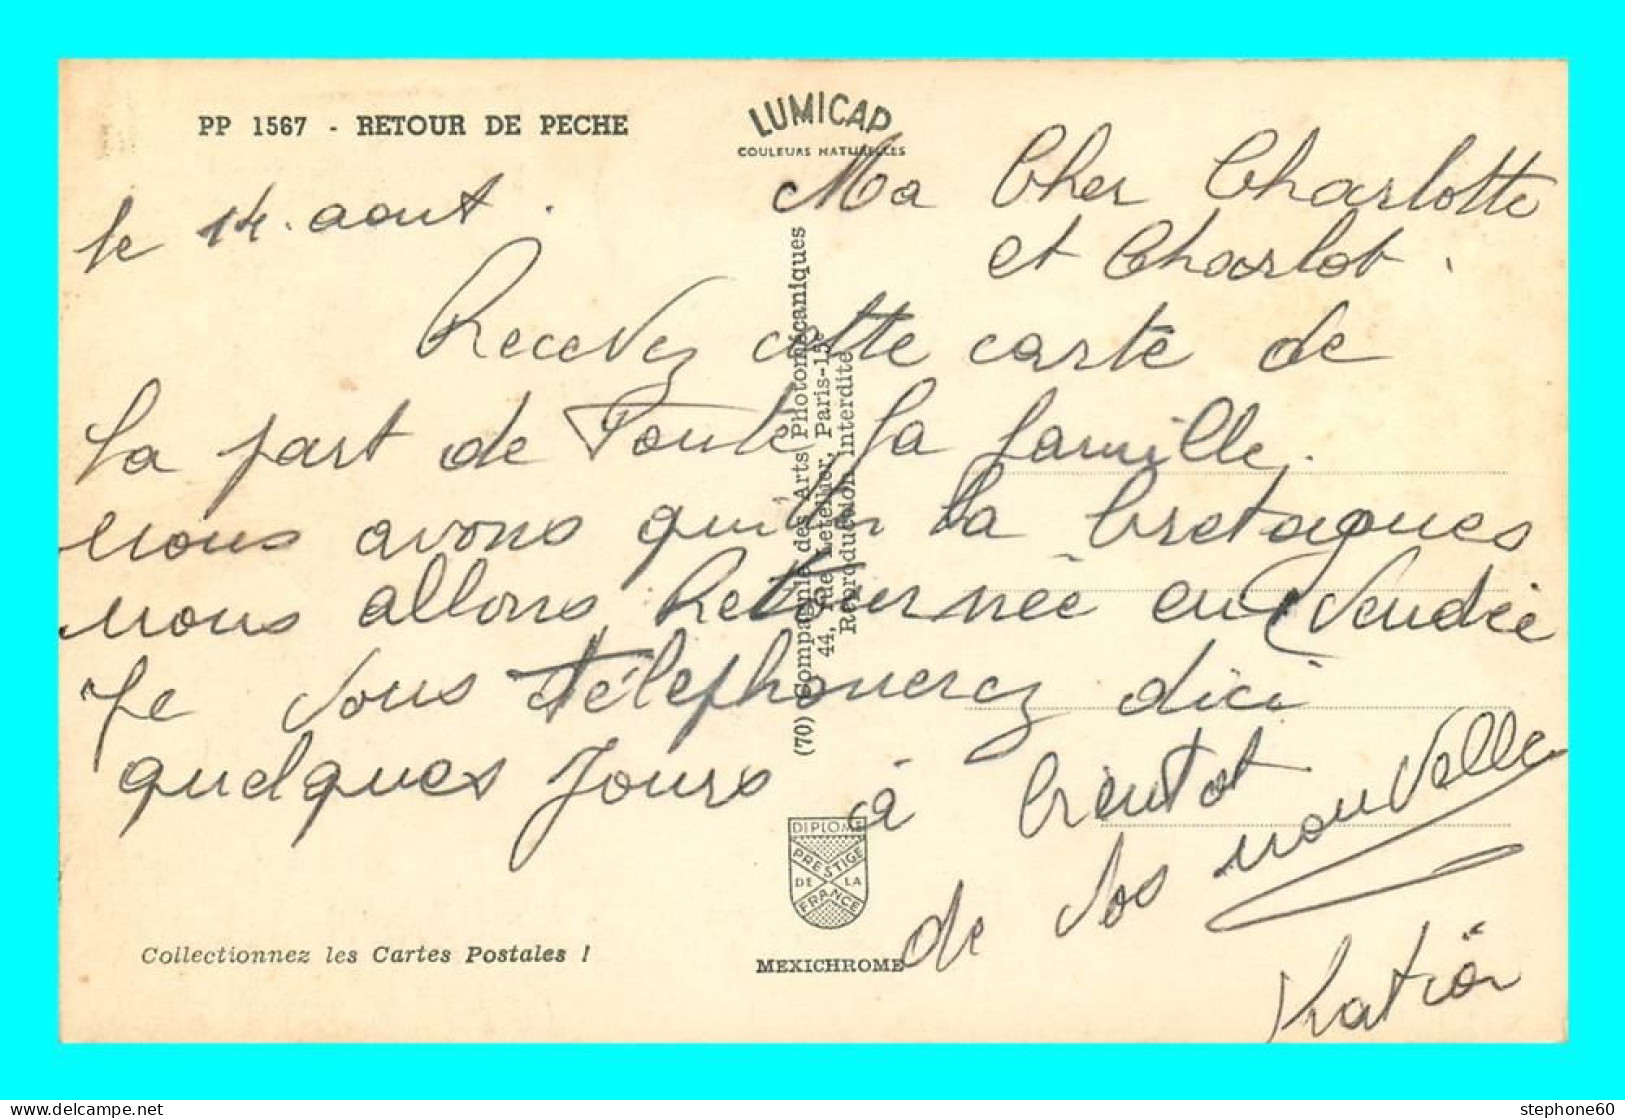 PP 1567 - RETOUR DE PECHE
LUMICAP
COULEURS NATURELLES
le 14. aout.
Ma Cher Charlotte
et Charlot.
Recevez cette carte de
la part de Toute la famille.
nous avons quitter la bretagnes
nous allons Retournée en Vendée
Je vous téléphonerez dici
quelques Jours à bientot
de vos nouvelle
(70) Compagnie des Arts Photomécaniques
44, rue Letellier, Paris-15e
Reproduction interdite
DIPLOME
PRESTIGE
DE LA
FRANCE
Collectionnez les Cartes Postales !
MEXICHROME
stephone60